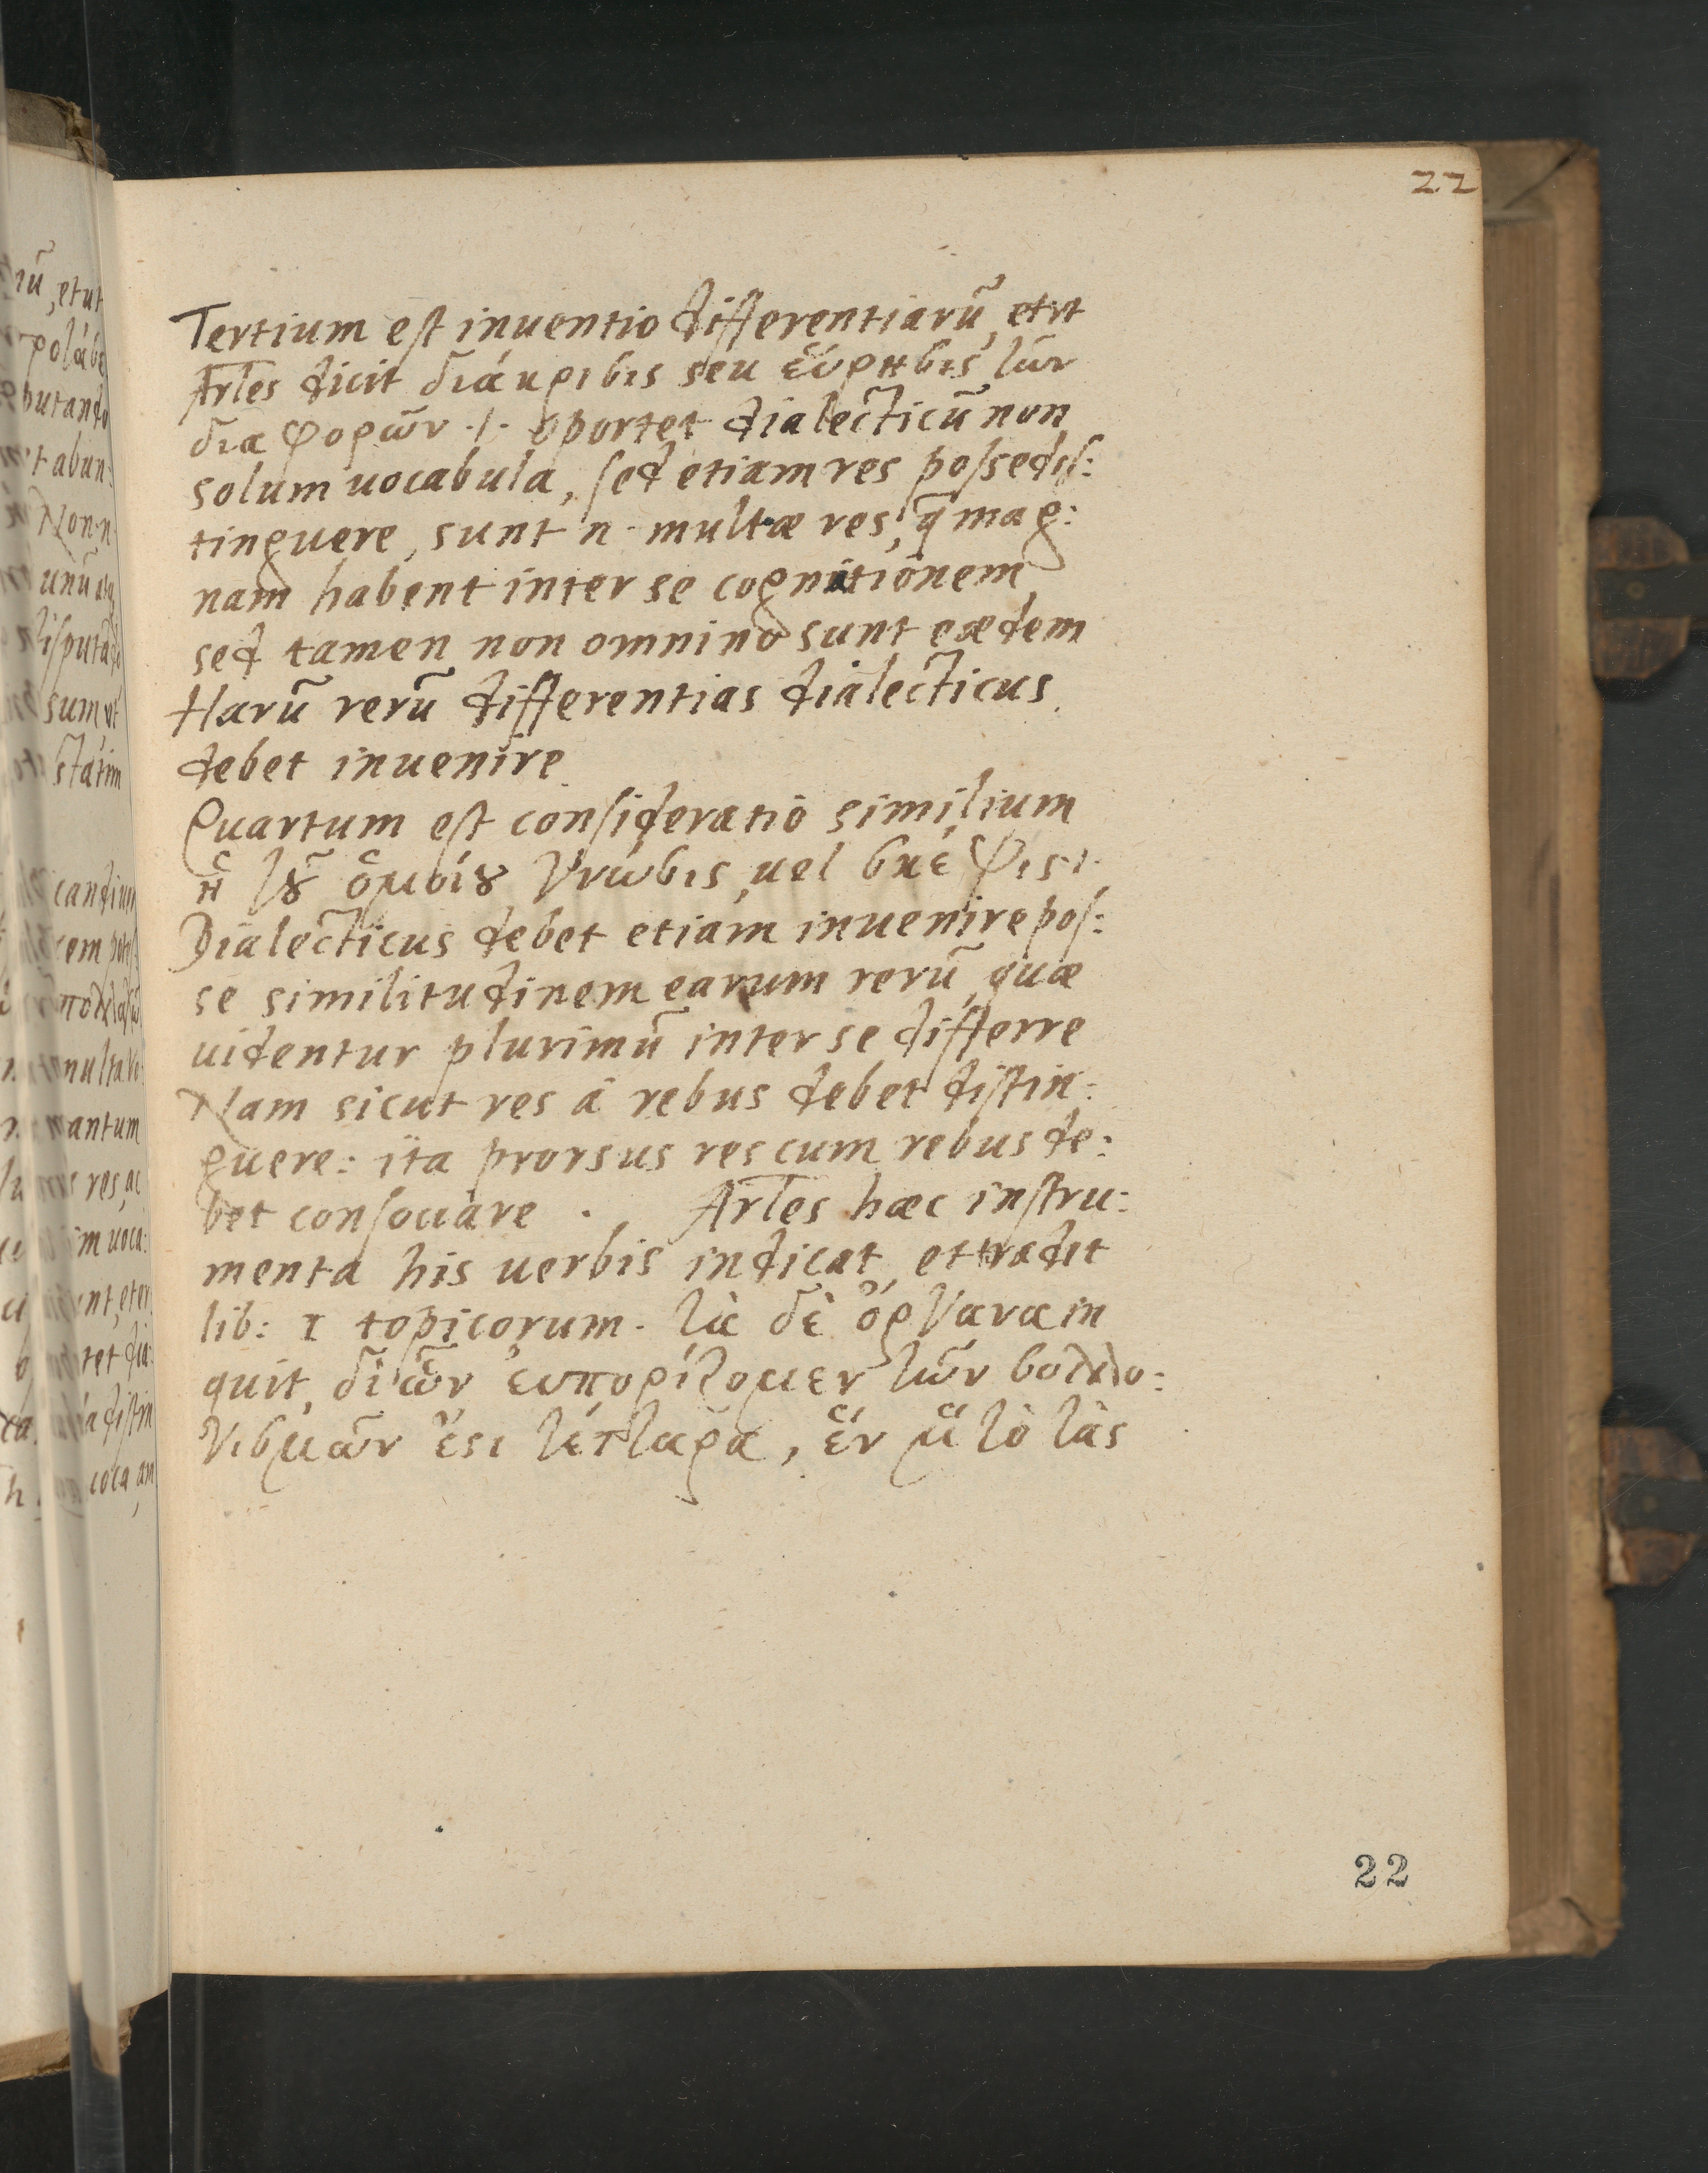 22
Tertium est inuentio differentiarū, et vt
Ar̄les dicit διάκρισις seu εὕρησις τῶν
διαφορῶν .i. oportet dialecticū non
solum uocabula, sed etiam res posse dis:
tinguere, sunt n. multæ res, q̄ mag:
nam habent inter se cognitionem
sed tamen non omnino sunt eædem
Harū rerū differentias dialecticus
debet inuenire
Quartum est consideratio similium
ἢ τȣ͂ ὁμοίȣ γνῶσις, uel σκέψις .i.
Dialecticus debet etiam inuenire pos:
se similitudinem earum rerū, quæ
uidentur plurimū inter se differre
Nam sicut res à rebus debet distin:
guere: ita prorsus res cum rebus de:
bet consociare . Ar̄les hæc instru:
menta his uerbis indicat, et tradit
lib: I topicorum. τὰ δὲ ὄργανα in
quit, δι' ὧν εὐπορίζομεν τῶν συλλο:
γισμῶν ἐςι τέτταρα, ἓν μ̀ τὸ τὰς
22